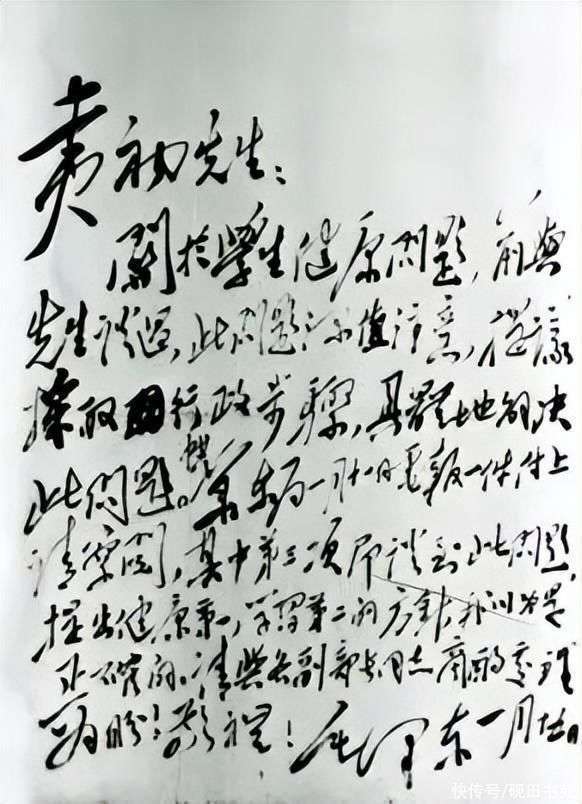 夷初先生：
關於學生健康問題，前與
先生談過，此問題深值注意，提議
採取行政步驟，具體地解決
此問題。一月十一日電報一件付上
請察閱，其中第三項即談到此問題，
提出健康第一，學習第二的方針，我以為是
正確的。請與各副部長同志商酌處理
為盼！敬禮！毛澤東 一月十五日
快传号/砚田书